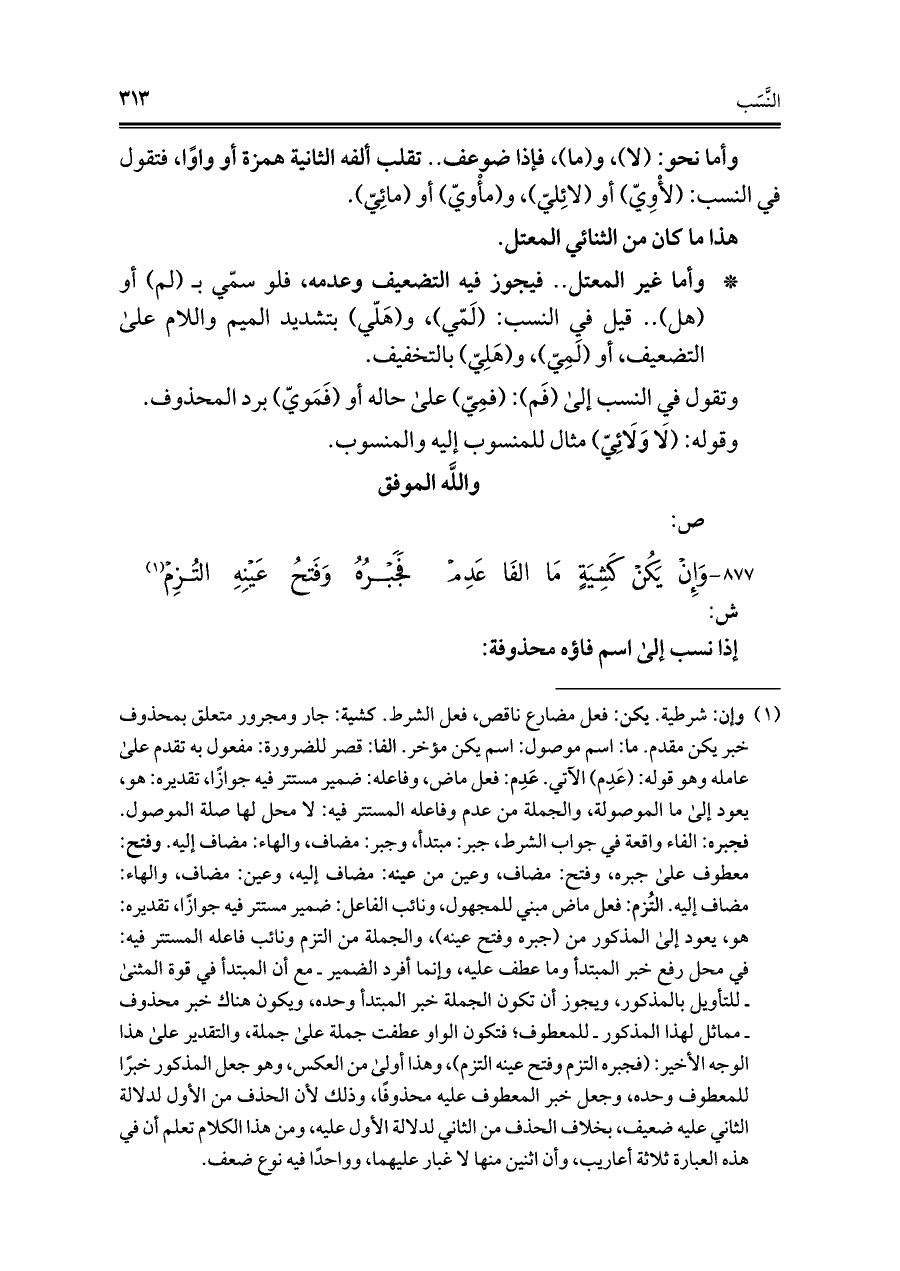 النَّسَب ٣١٣
وأما نحو: (لا)، و(ما)، فإذا ضوعف.. تقلب ألفه الثانية همزة أو واوًا، فتقول
في النسب: (لأْوِيّ) أو (لائِليّ)، و(مأْويّ) أو (مائِيّ).
هذا ما كان من الثنائي المعتل.
* وأما غير المعتل.. فيجوز فيه التضعيف وعدمه، فلو سمّي بـ (لم) أو
(هل).. قيل في النسب: (لَمّي)، و(هَلّي) بتشديد الميم واللام علىٰ
التضعيف، أو (لَمِيّ)، و(هَلِيّ) بالتخفيف.
وتقول في النسب إلىٰ (فَم): (فمِيّ) علىٰ حاله أو (فَمَويّ) برد المحذوف.
وقوله: (لَا وَلَائِيّ) مثال للمنسوب إليه والمنسوب.
واللَّه الموفق
ص:
٨٧٧-وَإِنْ يَكُنْ كَشِيَةٍ مَا الفَا عَدِمْ فَجَبْرُهُ وَفَتحُ عَيْنِهِ التُزِمْ(١)
ش:
إذا نسب إلىٰ اسم فاؤه محذوفة:
(١) وإن: شرطية. يكن: فعل مضارع ناقص، فعل الشرط. كشية: جار ومجرور متعلق بمحذوف
خبر يكن مقدم. ما: اسم موصول: اسم يكن مؤخر. الفا: قصر للضرورة: مفعول به تقدم علىٰ
عامله وهو قوله: (عَدِم) الآتي. عَدِم: فعل ماض، وفاعله: ضمير مستتر فيه جوازًا، تقديره: هو،
يعود إلىٰ ما الموصولة، والجملة من عدم وفاعله المستتر فيه: لا محل لها صلة الموصول.
فجبره: الفاء واقعة في جواب الشرط، جبر: مبتدأ، وجبر: مضاف، والهاء: مضاف إليه. وفتح:
معطوف علىٰ جبره، وفتح: مضاف، وعين من عينه: مضاف إليه، وعين: مضاف، والهاء:
مضاف إليه. التُزم: فعل ماض مبني للمجهول، ونائب الفاعل: ضمير مستتر فيه جوازًا، تقديره:
هو، يعود إلىٰ المذكور من (جبره وفتح عينه)، والجملة من التزم ونائب فاعله المستتر فيه:
في محل رفع خبر المبتدأ وما عطف عليه، وإنما أفرد الضمير ـ مع أن المبتدأ في قوة المثنىٰ
ـ للتأويل بالمذكور، ويجوز أن تكون الجملة خبر المبتدأ وحده، ويكون هناك خبر محذوف
ـ مماثل لهذا المذكور ـ للمعطوف؛ فتكون الواو عطفت جملة علىٰ جملة، والتقدير علىٰ هذا
الوجه الأخير: (فجبره التزم وفتح عينه التزم)، وهذا أولىٰ من العكس، وهو جعل المذكور خبرًا
للمعطوف وحده، وجعل خبر المعطوف عليه محذوفًا، وذلك لأن الحذف من الأول لدلالة
الثاني عليه ضعيف، بخلاف الحذف من الثاني لدلالة الأول عليه، ومن هذا الكلام تعلم أن في
هذه العبارة ثلاثة أعاريب، وأن اثنين منها لا غبار عليهما، وواحدًا فيه نوع ضعف.